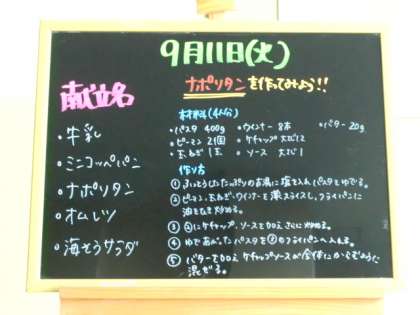 9月11日(火)
献立名
・牛乳
・ミニコッペパン
・ナポリタン
・オムレツ
・海そうサラダ
ナポリタンを作ってみよう!!
材料(4人分)
・パスタ 400g ・ウインナー 8本 ・バター 20g
・ピーマン 2個 ・ケチャップ 大さじ12
・玉ねぎ 1玉 ・ソース 大さじ1
作り方
① ふっとうしたたっぷりのお湯に塩を入れパスタをゆでる。
② ピーマン、玉ねぎ、ウインナーを薄くスライスし、フライパンに
油をひき炒める。
③ ②にケチャップ、ソースを加えさらに炒める。
④ ゆであがったパスタを③のフライパンへ入れる。
⑤ バターを加えケチャップソースが全体にからむように
混ぜる。